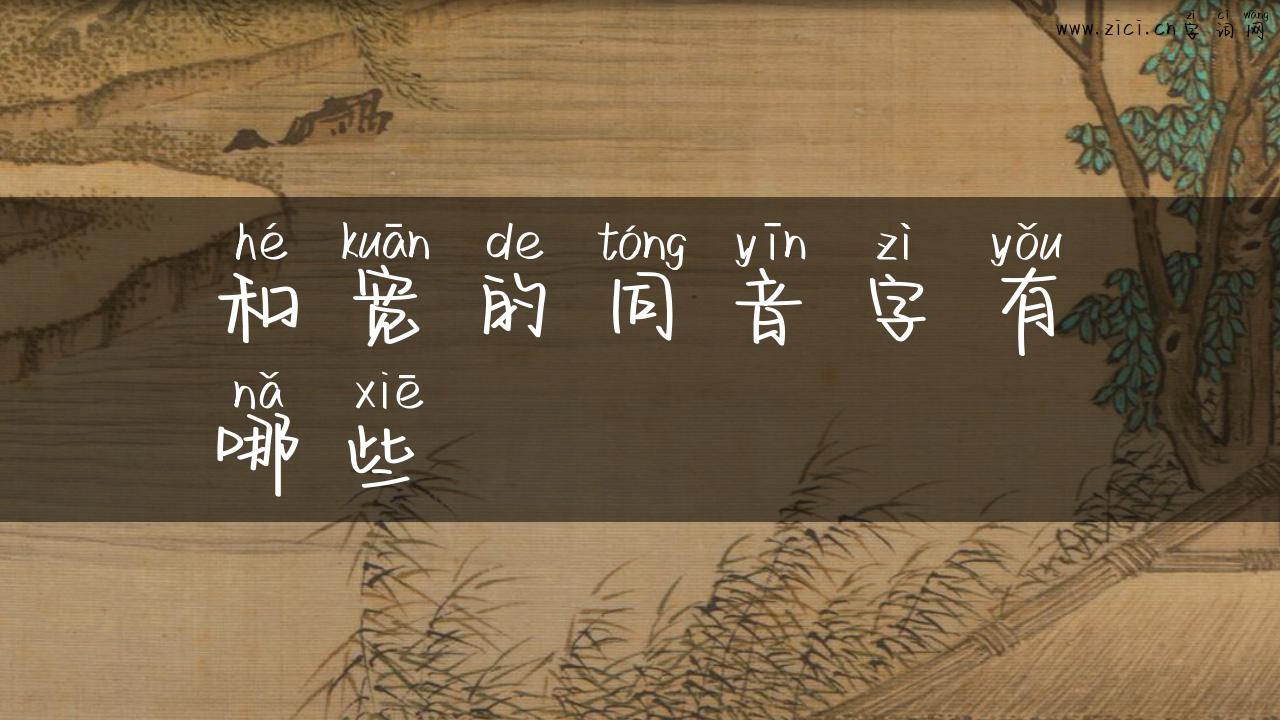 zì cí wǎng
www.zici.cn字词网
hé kuān de tóng yīn zì yǒu
和宽的同音字有
nǎ xiē
哪些